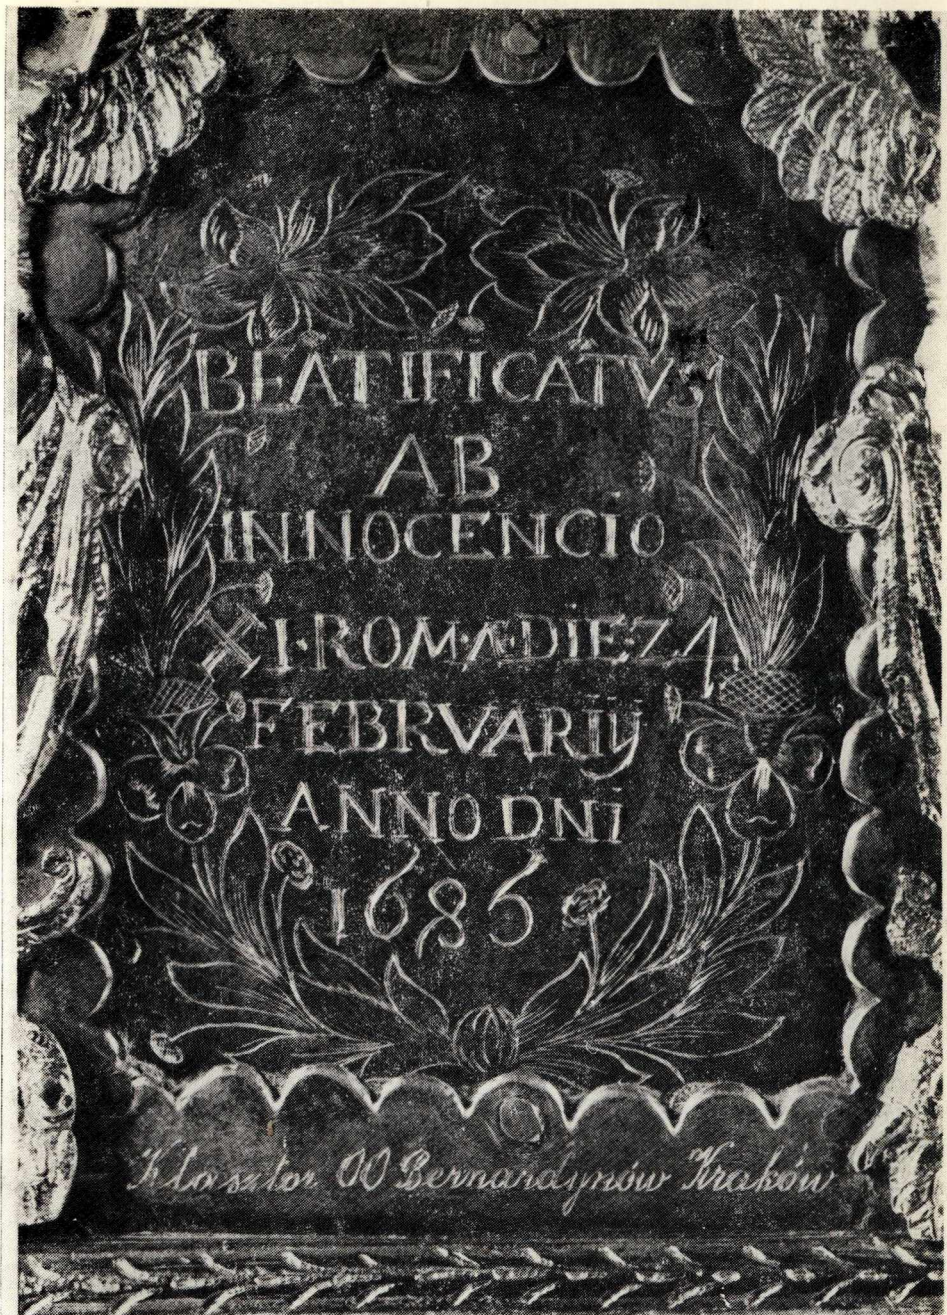 BEATIFICATVS
AB
INNOCENCIO
XI·ROMA·DIE·21
FEBRVARIJ
ANNO DNI
1685
Klasztor OO Bernardynów Kraków